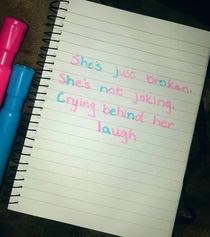 She's just broken.
She's not joking.
Crying behind her
laugh